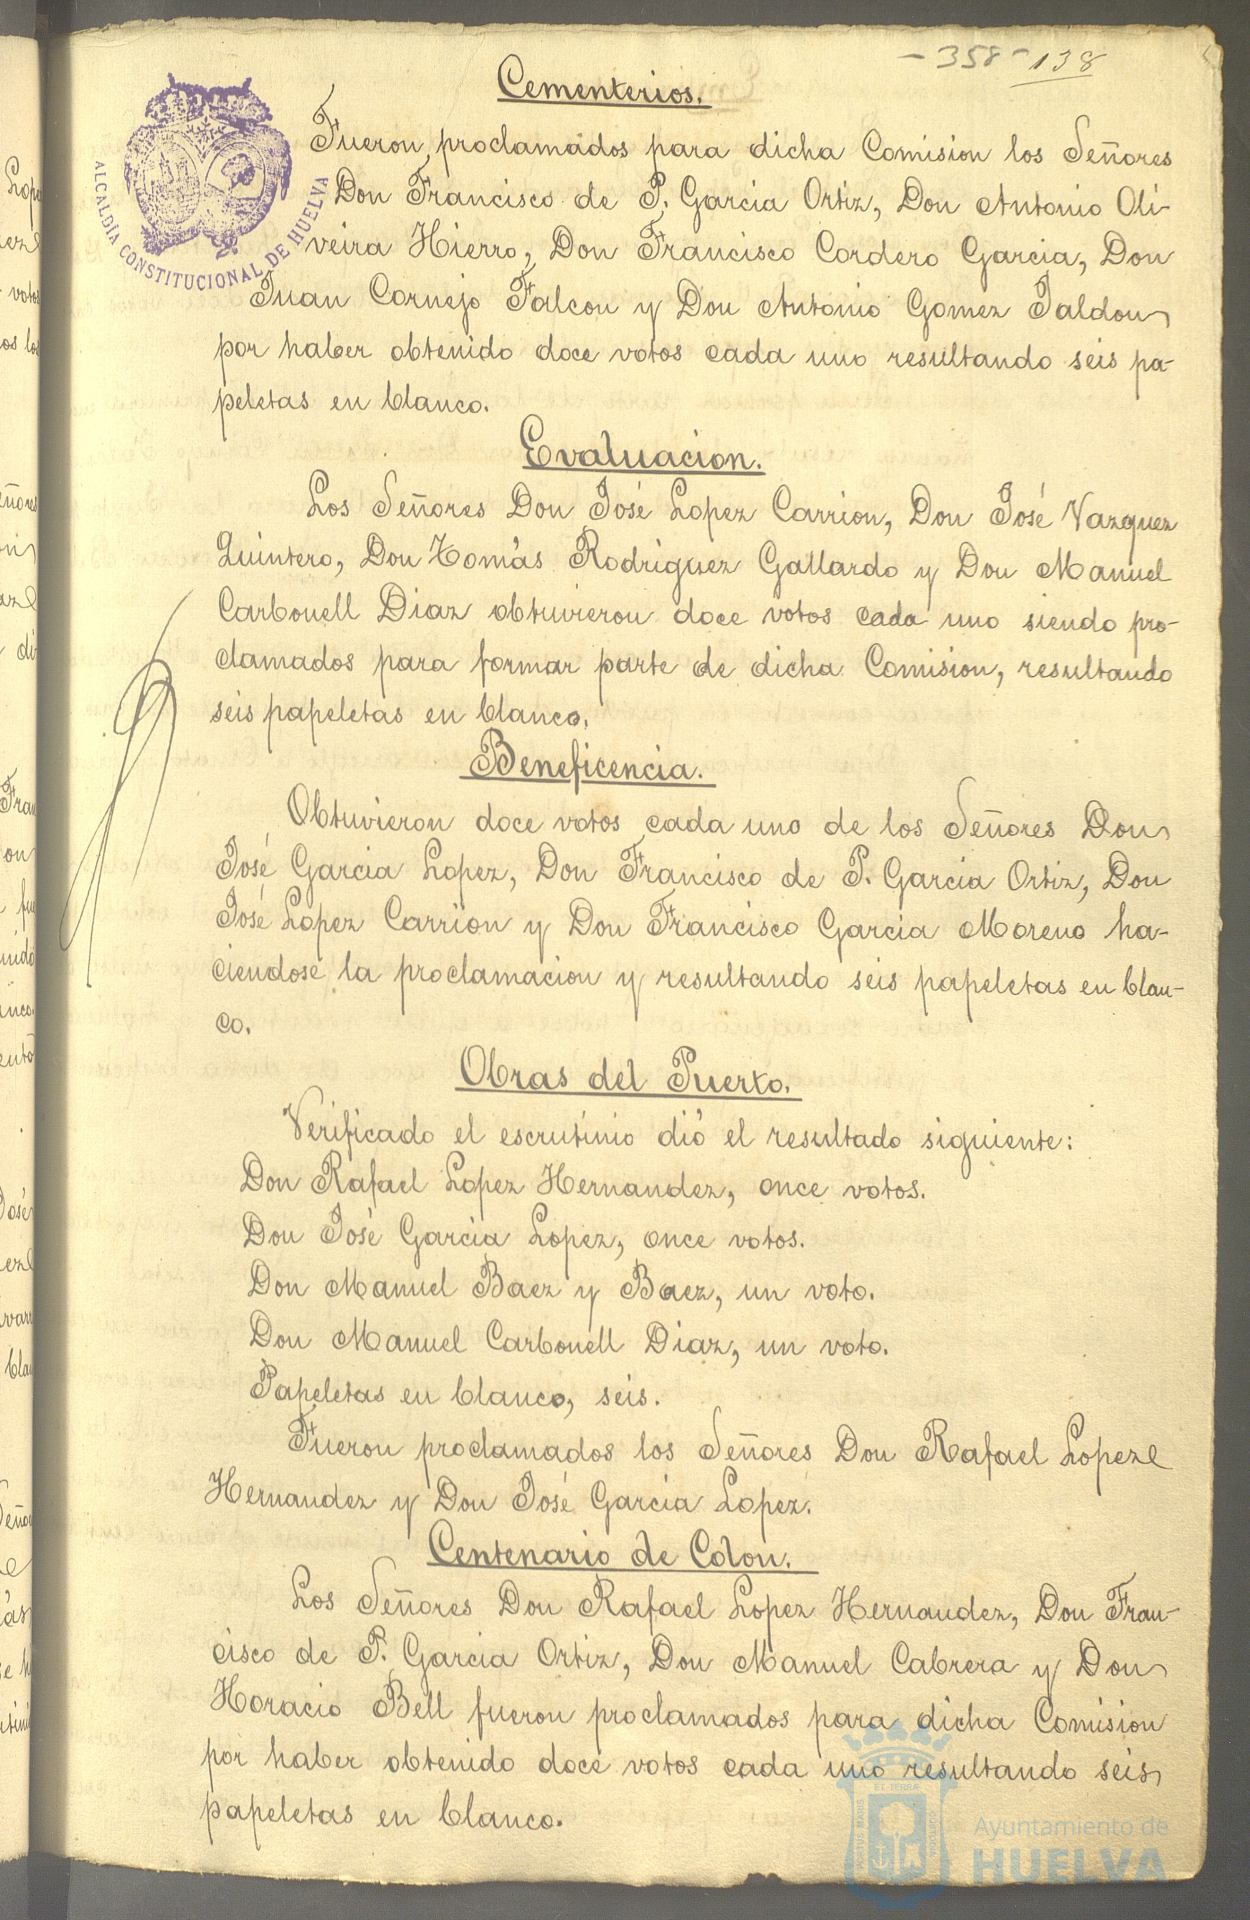 -358- 138
Cementerios.
ALCALDÍA CONSTITUCIONAL DE HUELVA
Fueron proclamádos para dicha Comision los Señores
Don Francisco de P. Garcia Ortiz, Don Antonio Oli-
veira Hierro, Don Francisco Cordero Garcia, Don
Juan Cornejo Falcon y Don Antonio Gomez Jaldon
por haber obtenido doce votos cada uno resultando seis pa-
peletas en blanco.
Evaluacion.
Los Señores Don José Lopez Carrion, Don José Vazquez
Quintero, Don Tomás Rodriguez Gallardo y Don Manuel
Carbonell Diaz obtuvieron doce votos cada uno siendo pro-
clamados para formar parte de dicha Comision, resultando
seis papeletas en blanco.
Beneficencia.
Obtuvieron doce votos cada uno de los Señores Don
José Garcia Lopez, Don Francisco de P. Garcia Ortiz, Don
José Lopez Carrion y Don Francisco Garcia Moreno ha-
ciendose la proclamacion y resultando seis papeletas en blan-
co.
Obras del Puerto.
Verificado el escrutinio dió el resultado siguiente:
Don Rafael Lopez Hernandez, once votos.
Don José Garcia Lopez, once votos.
Don Manuel Baez y Baez, un voto.
Don Manuel Carbonell Diaz, un voto.
Papeletas en blanco, seis.
Fueron proclamados los Señores Don Rafael Lopez
Hernandez y Don José Garcia Lopez.
Centenario de Colon.
Los Señores Don Rafael Lopez Hernandez, Don Fran-
cisco de P. Garcia Ortiz, Don Manuel Cabrera y Don
Horacio Bell fueron proclamados para dicha Comision
por haber obtenido doce votos cada uno resultando seis
papeletas en blanco.
Ayuntamiento de
HUELVA